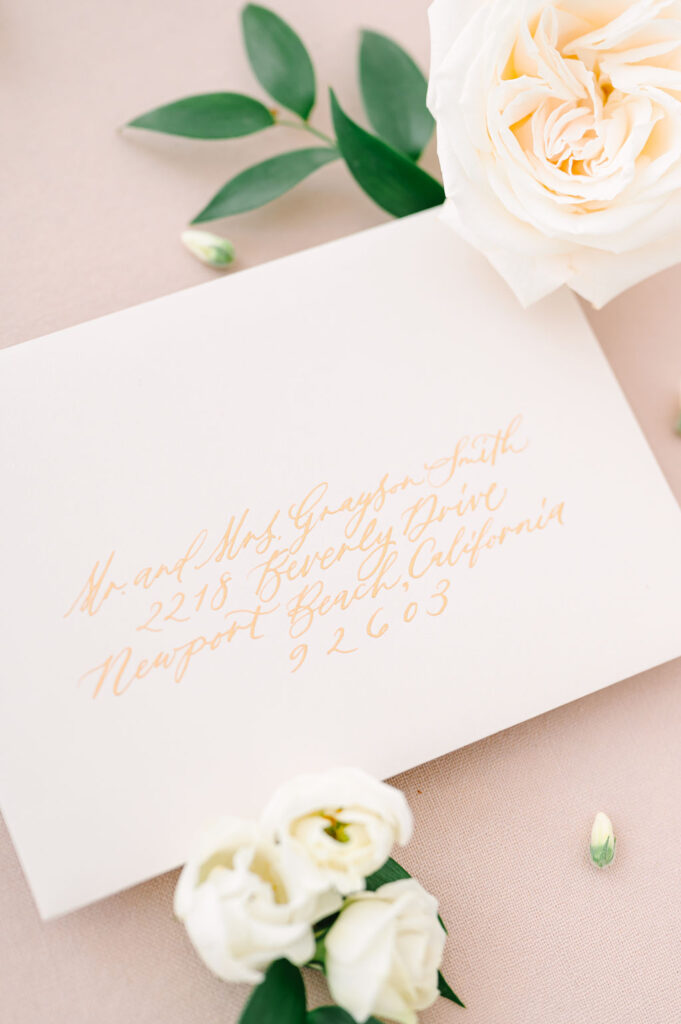 Mr. and Mrs. Grayson Smith
2218 Beverly Drive
Newport Beach, California
92603